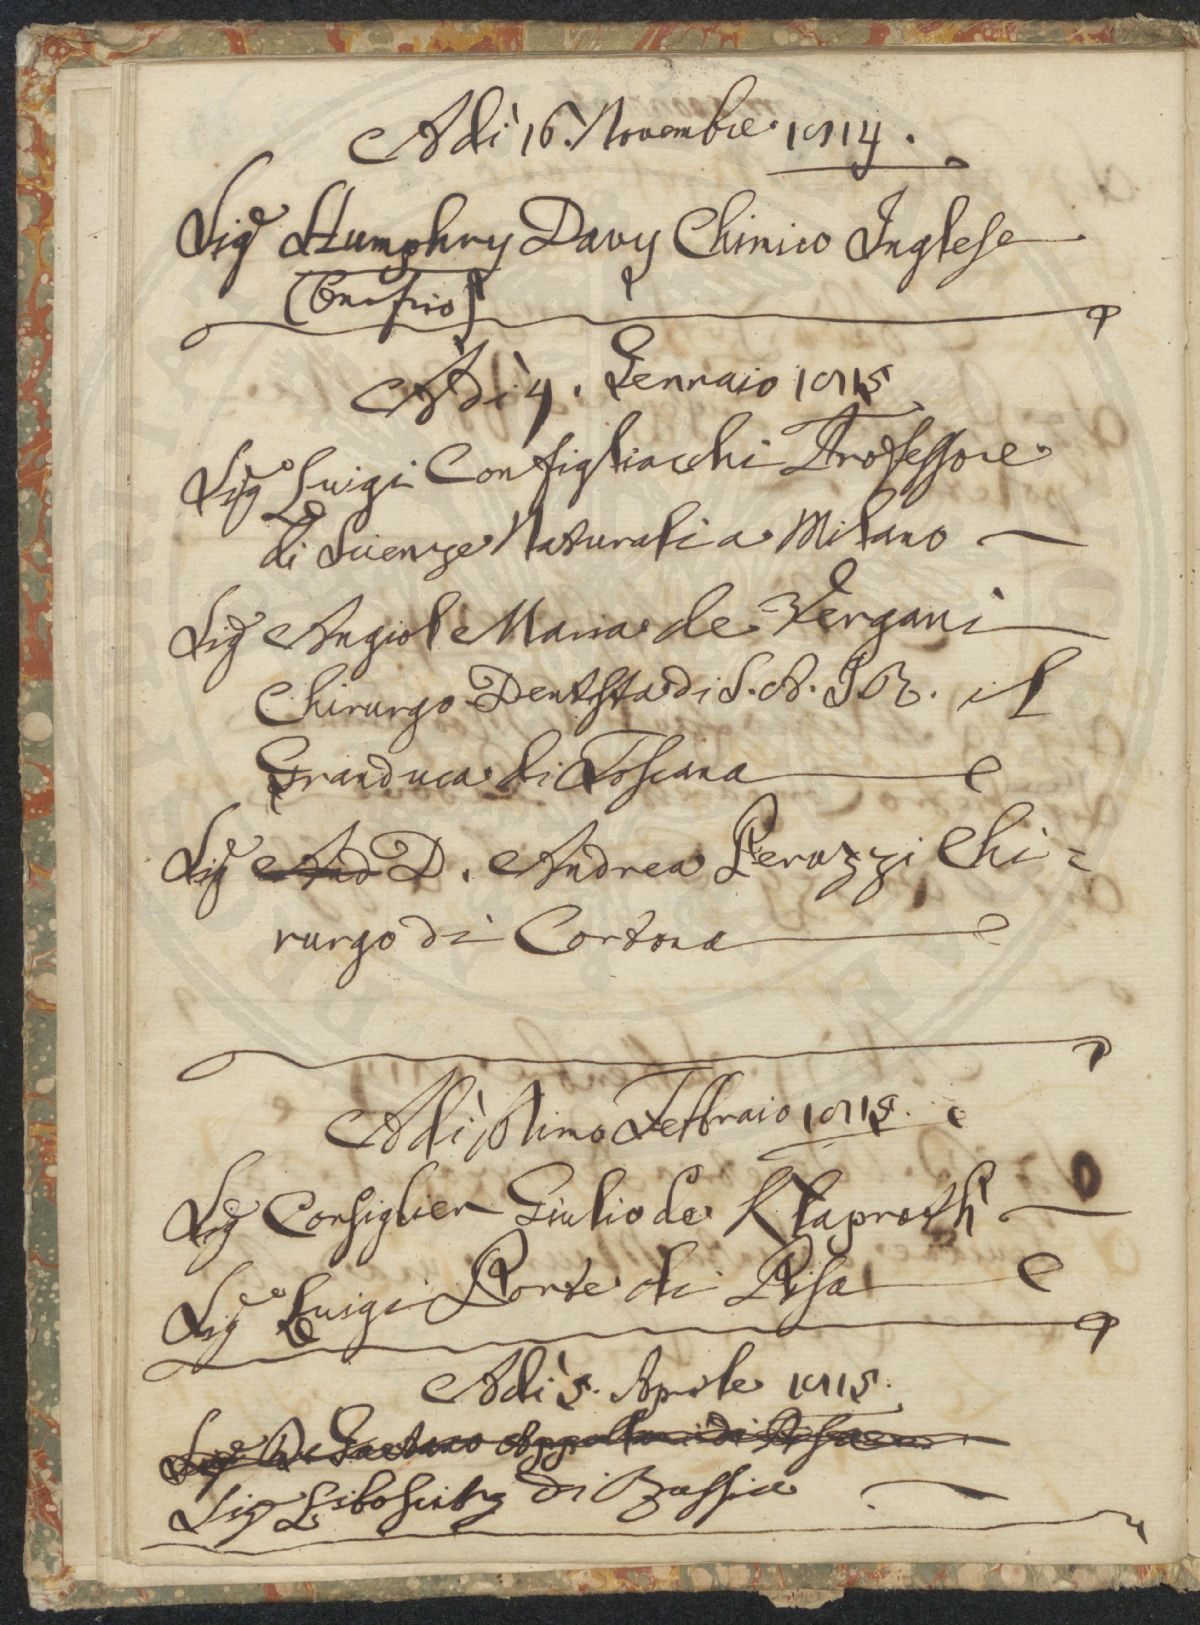 Adì 16. Novembre 1814.
Sigre Humphry Davy Chimico Inglese
Adì 4. Gennaio 1815
Sigre Luigi Configliacchi Professore
di Scienze Naturali a Milano
Sigre Angiol Maria de Vergani
Chirurgo Dentista di S. A. I. R. il
Granduca di Toscana
Sigre And D. Andrea Perazzi Chi=
rurgo di Cortona
Adì Pimo Febbraio 1815.
Sigre Consiglier Giulio de Klaproth
Sigre Luigi Porte di Pisa
Adì 5. Aprile 1815.
Sigre Dr Gaetano di Pisa
Sigre di Russia